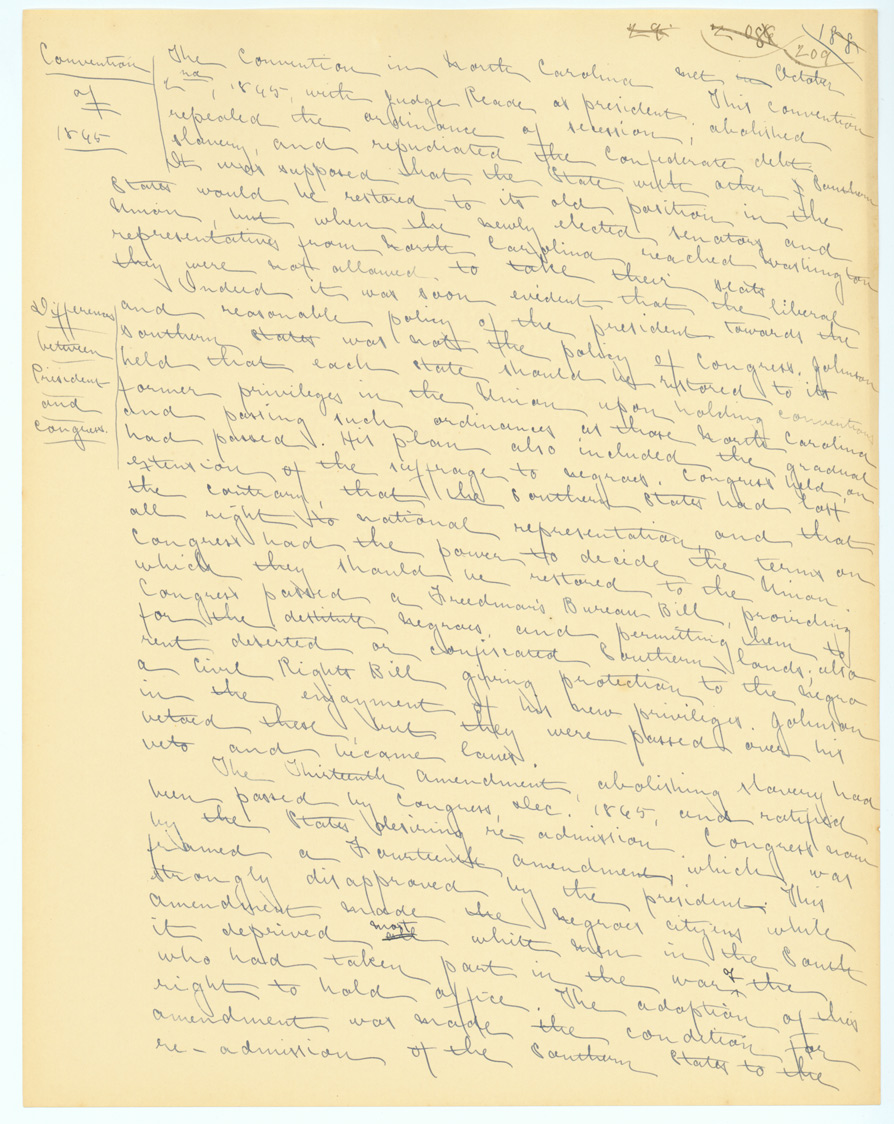 188
209
Convention
of
1865
The Convention in North Carolina met in October
2nd, 1865, with Judge Reade as president. This convention
repealed the ordinance of secession; abolished
slavery, and repudiated the Confederate debt.
It was supposed that the State with other Southern
States would be restored to its old position in the
Union, but when the newly elected senators and
representatives from North Carolina reached Washington
they were not allowed to take their seats.
Differences
between
President
and
Congress.
Indeed it was soon evident that the liberal
and reasonable policy of the president towards the
southern states was not the policy of Congress. Johnson
held that each state should be restored to its
former privileges in the Union upon holding conventions
and passing such ordinances as those North Carolina
had passed. His plan also included the gradual
extension of the suffrage to negroes. Congress held, on
the contrary, that the Southern States had lost
all right to national representation, and that
Congress had the power to decide the terms on
which they should be restored to the Union.
Congress passed a Freedman's Bureau Bill, providing
for the destitute negroes, and permitting them to
rent deserted or confiscated Southern lands; also
a Civil Rights Bill giving protection to the negro
in the enjoyment of his new priviliges. Johnson
vetoed these, but they were passed over his
veto and became laws.
The Thirteenth amendment, abolishing slavery had
been passed by Congress, Dec. 1865, and ratified
by the States desiring re-admission. Congress now
framed a Fourteenth amendment, which was
strongly disapproved by the president. This
amendment made the negroes citizens while
it deprived most white men in the South
who had taken part in the war of the
right to hold office. The adoption of this
amendment was made the condition for
re-admission of the Southern States to the